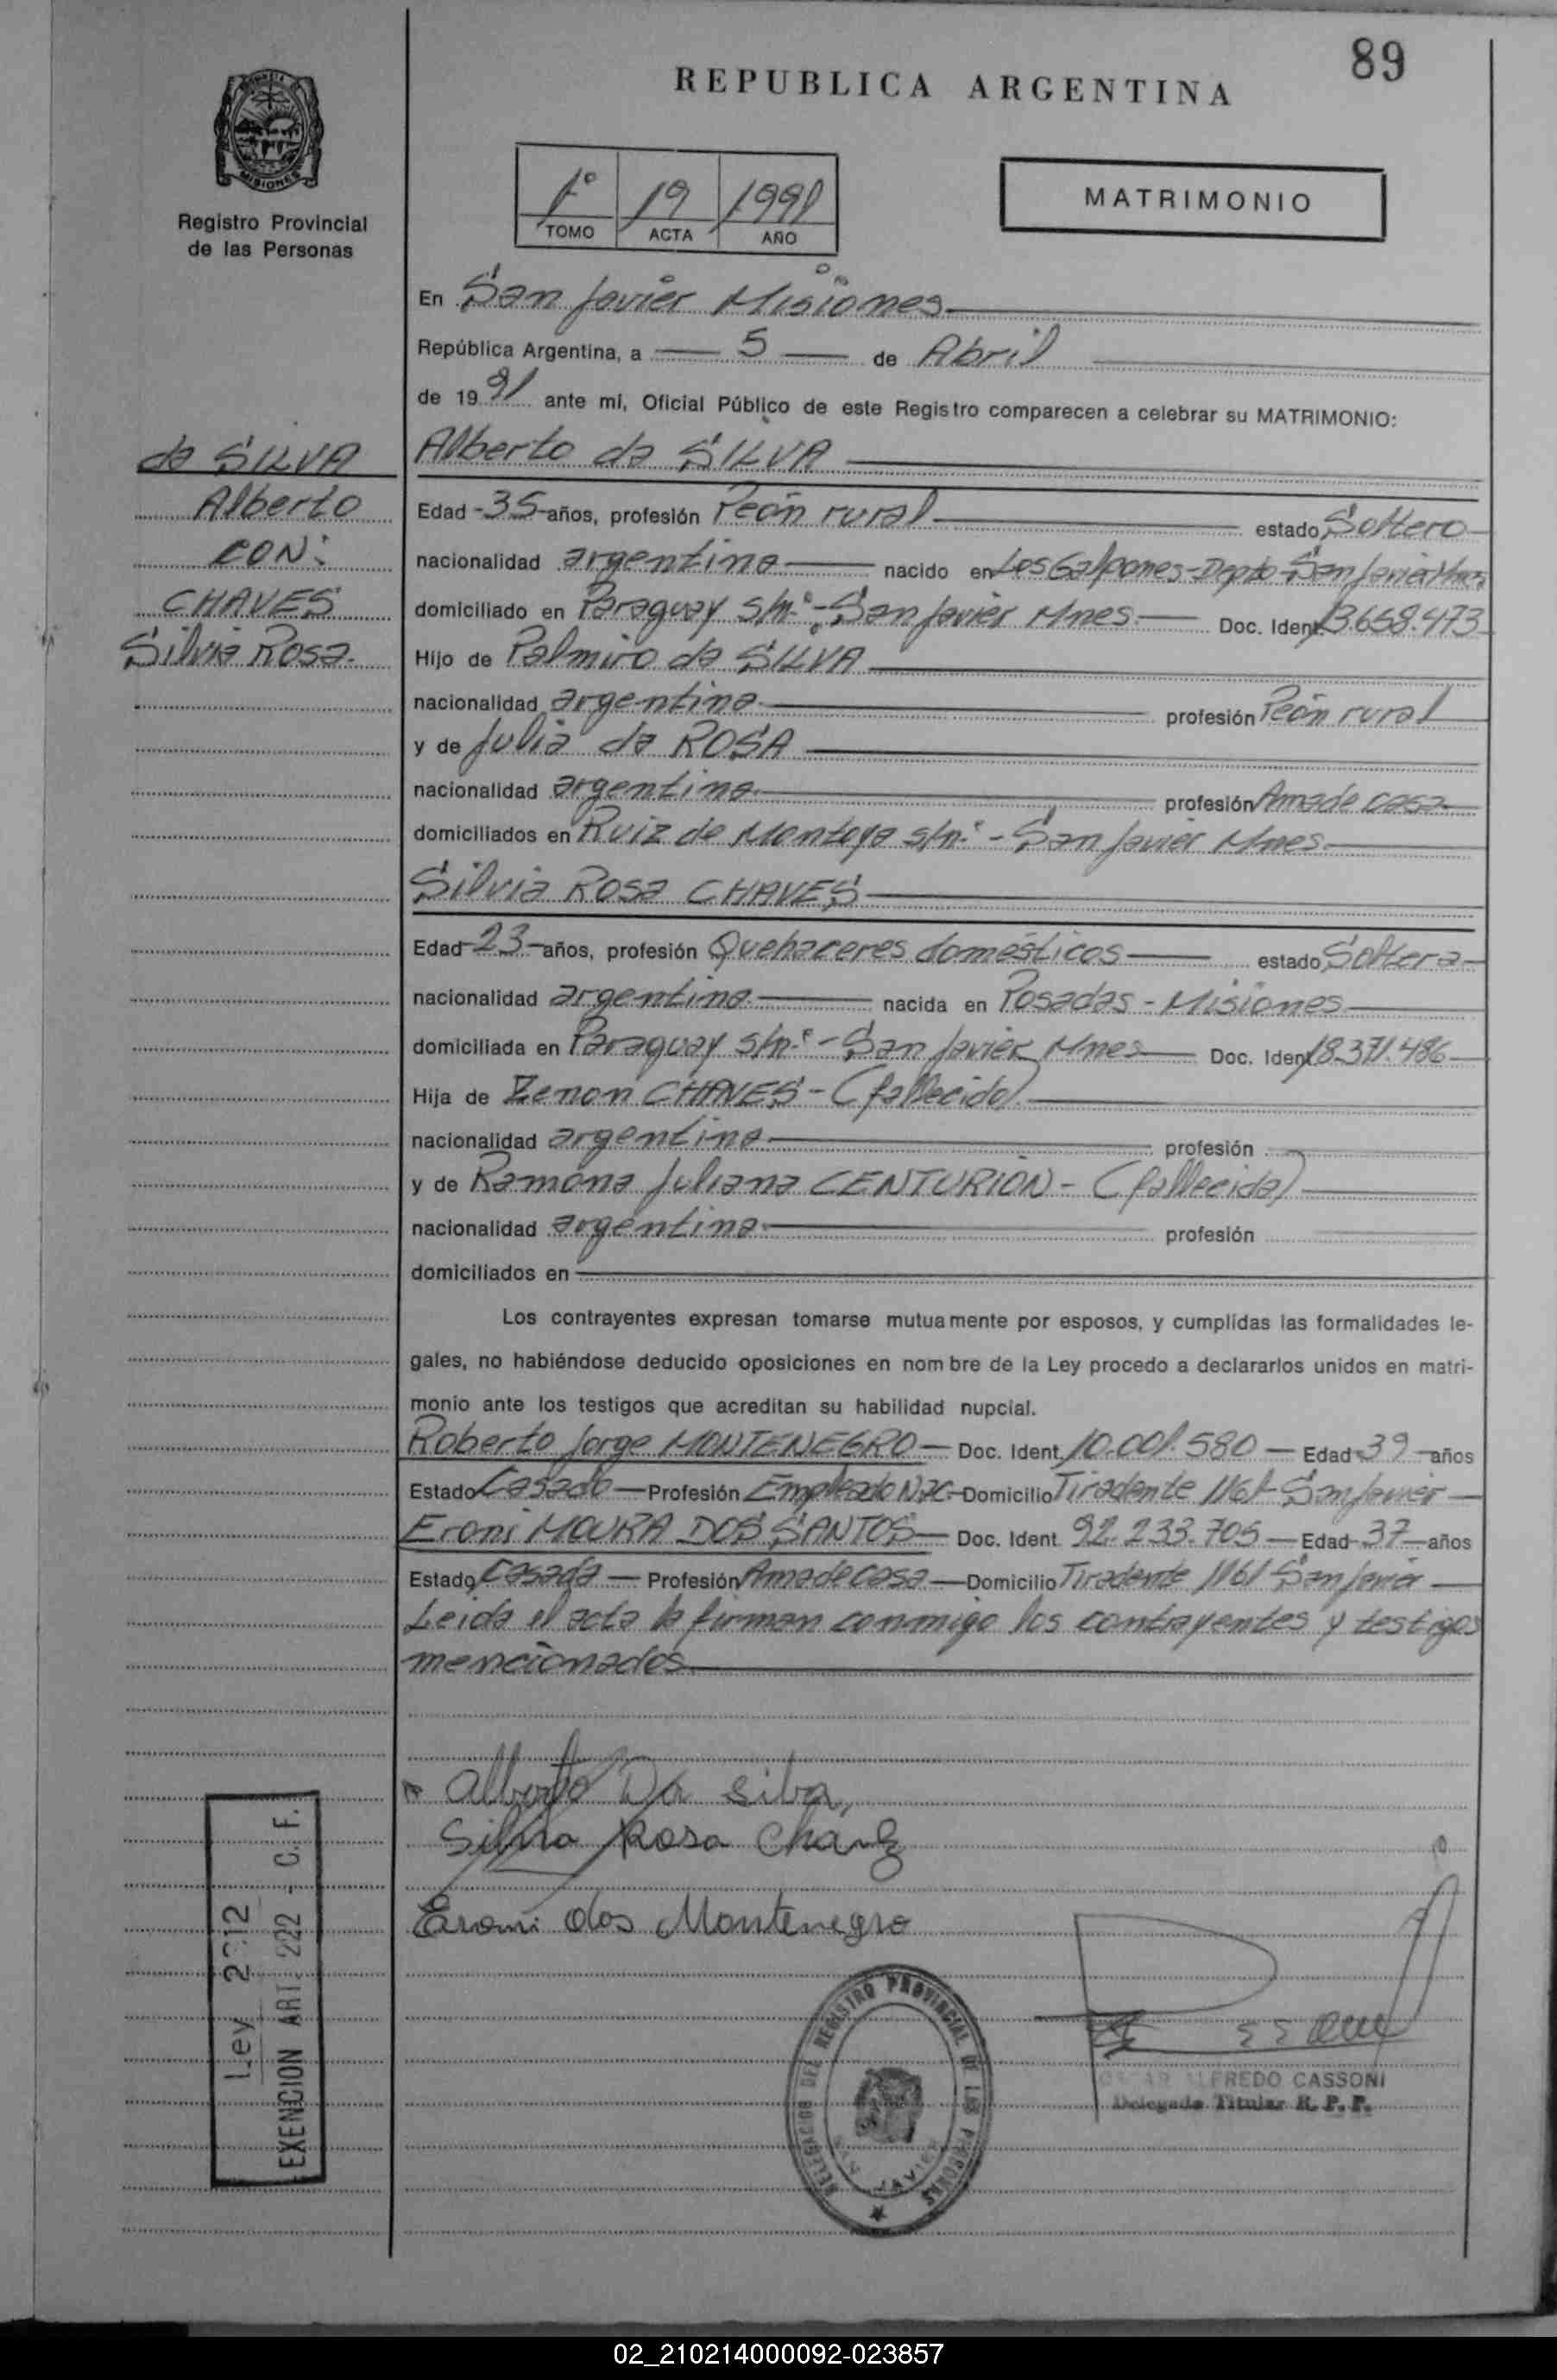 89
REPUBLICA ARGENTINA
MISIONES
Registro Provincial
de las Personas
1º 19 1991
TOMO ACTA AÑO
MATRIMONIO
En San Javier Misiones
República Argentina, a 5 de Abril
de 1991 ante mí, Oficial Público de este Registro comparecen a celebrar su MATRIMONIO:
da SILVA
Alberto
CON:
CHAVES
Silvia Rosa.
Alberto da SILVA
Edad -35- años, profesión Peón rural estado Soltero
nacionalidad argentina nacido en Los Galpones-Depto San Javier Mnes
domiciliado en Paraguay s/nº - San Javier Mnes. Doc. Ident. 13.658.473
Hijo de Palmiro da SILVA
nacionalidad argentina profesión Peón rural
y de Julia da ROSA
nacionalidad argentina profesión Ama de casa
domiciliados en Ruiz de Montoya s/nº - San Javier Mnes
Silvia Rosa CHAVES
Edad -23- años, profesión Quehaceres domésticos estado Soltera
nacionalidad argentina nacida en Posadas - Misiones
domiciliada en Paraguay s/nº - San Javier Mnes Doc. Ident 18.371.486
Hija de Zenón CHAVES - (fallecido)
nacionalidad argentina profesión
y de Ramona Juliana CENTURIÓN - (fallecida)
nacionalidad argentina profesión
domiciliados en
Los contrayentes expresan tomarse mutuamente por esposos, y cumplidas las formalidades le-
gales, no habiéndose deducido oposiciones en nombre de la Ley procedo a declararlos unidos en matri-
monio ante los testigos que acreditan su habilidad nupcial.
Roberto Jorge MONTENEGRO Doc. Ident. 10.001.580 Edad 39 años
Estado Casado Profesión Empleado Nac. Domicilio Tiradente 1161 San Javier
Eroni MOURA DOS SANTOS Doc. Ident. 92.233.705 Edad 37 años
Estado Casada Profesión Ama de casa Domicilio Tiradente 1161 San Javier
Leida el acta la firman conmigo los contrayentes y testigos
mencionados
Alberto Da silva
Silvia Rosa Chavez
Eroni dos Montenegro
Ley 2212
EXENCION ART. 222 - C. F.
DELEGACION DEL REGISTRO PROVINCIAL DE LAS PERSONAS
SAN JAVIER
OSCAR ALFREDO CASSONI
Delegado Titular R. P. P.
02_210214000092-023857